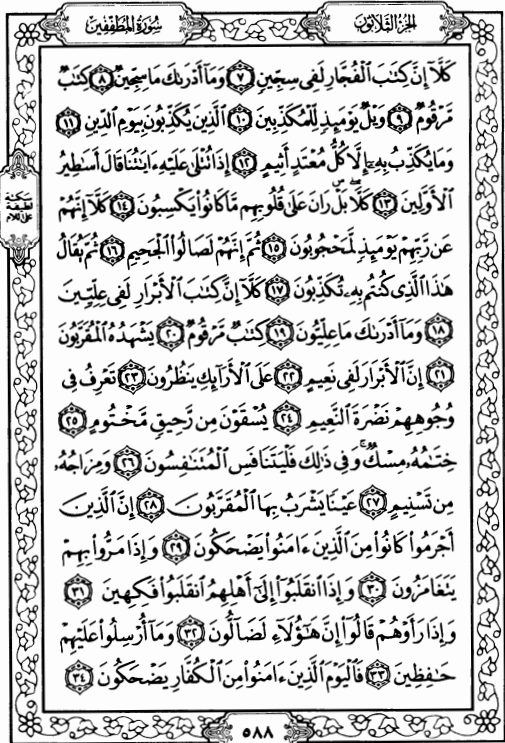 الجزء الثلاثون
سورة المطففين
كَلَّآ إِنَّ كِتَـٰبَ ٱلْفُجَّارِ لَفِى سِجِّينٍ ٧ وَمَآ أَدْرَىٰكَ مَا سِجِّينٌ ٨ كِتَـٰبٌ
مَّرْقُومٌ ٩ وَيْلٌ يَوْمَئِذٍ لِّلْمُكَذِّبِينَ ١٠ ٱلَّذِينَ يُكَذِّبُونَ بِيَوْمِ ٱلدِّينِ ١١
وَمَا يُكَذِّبُ بِهِۦٓ إِلَّا كُلُّ مُعْتَدٍ أَثِيمٍ ١٢ إِذَا تُتْلَىٰ عَلَيْهِ ءَايَـٰتُنَا قَالَ أَسَـٰطِيرُ
ٱلْأَوَّلِينَ ١٣ كَلَّا ۖ بَلْ ۜ رَانَ عَلَىٰ قُلُوبِهِم مَّا كَانُوا۟ يَكْسِبُونَ ١٤ كَلَّآ إِنَّهُمْ
سكتة
لطيفة
على اللام
عَن رَّبِّهِمْ يَوْمَئِذٍ لَّمَحْجُوبُونَ ١٥ ثُمَّ إِنَّهُمْ لَصَالُوا۟ ٱلْجَحِيمِ ١٦ ثُمَّ يُقَالُ
هَـٰذَا ٱلَّذِى كُنتُم بِهِۦ تُكَذِّبُونَ ١٧ كَلَّآ إِنَّ كِتَـٰبَ ٱلْأَبْرَارِ لَفِى عِلِّيِّينَ
١٨ وَمَآ أَدْرَىٰكَ مَا عِلِّيُّونَ ١٩ كِتَـٰبٌ مَّرْقُومٌ ٢٠ يَشْهَدُهُ ٱلْمُقَرَّبُونَ
٢١ إِنَّ ٱلْأَبْرَارَ لَفِى نَعِيمٍ ٢٢ عَلَى ٱلْأَرَآئِكِ يَنظُرُونَ ٢٣ تَعْرِفُ فِى
وُجُوهِهِمْ نَضْرَةَ ٱلنَّعِيمِ ٢٤ يُسْقَوْنَ مِن رَّحِيقٍ مَّخْتُومٍ ٢٥
خِتَـٰمُهُۥ مِسْكٌ ۚ وَفِى ذَٰلِكَ فَلْيَتَنَافَسِ ٱلْمُتَنَـٰفِسُونَ ٢٦ وَمِزَاجُهُۥ
مِن تَسْنِيمٍ ٢٧ عَيْنًا يَشْرَبُ بِهَا ٱلْمُقَرَّبُونَ ٢٨ إِنَّ ٱلَّذِينَ
أَجْرَمُوا۟ كَانُوا۟ مِنَ ٱلَّذِينَ ءَامَنُوا۟ يَضْحَكُونَ ٢٩ وَإِذَا مَرُّوا۟ بِهِمْ
يَتَغَامَزُونَ ٣٠ وَإِذَا ٱنقَلَبُوٓا۟ إِلَىٰٓ أَهْلِهِمُ ٱنقَلَبُوا۟ فَكِهِينَ ٣١
وَإِذَا رَأَوْهُمْ قَالُوٓا۟ إِنَّ هَـٰٓؤُلَآءِ لَضَآلُّونَ ٣٢ وَمَآ أُرْسِلُوا۟ عَلَيْهِمْ
حَـٰفِظِينَ ٣٣ فَٱلْيَوْمَ ٱلَّذِينَ ءَامَنُوا۟ مِنَ ٱلْكُفَّارِ يَضْحَكُونَ ٣٤
٥٨٨